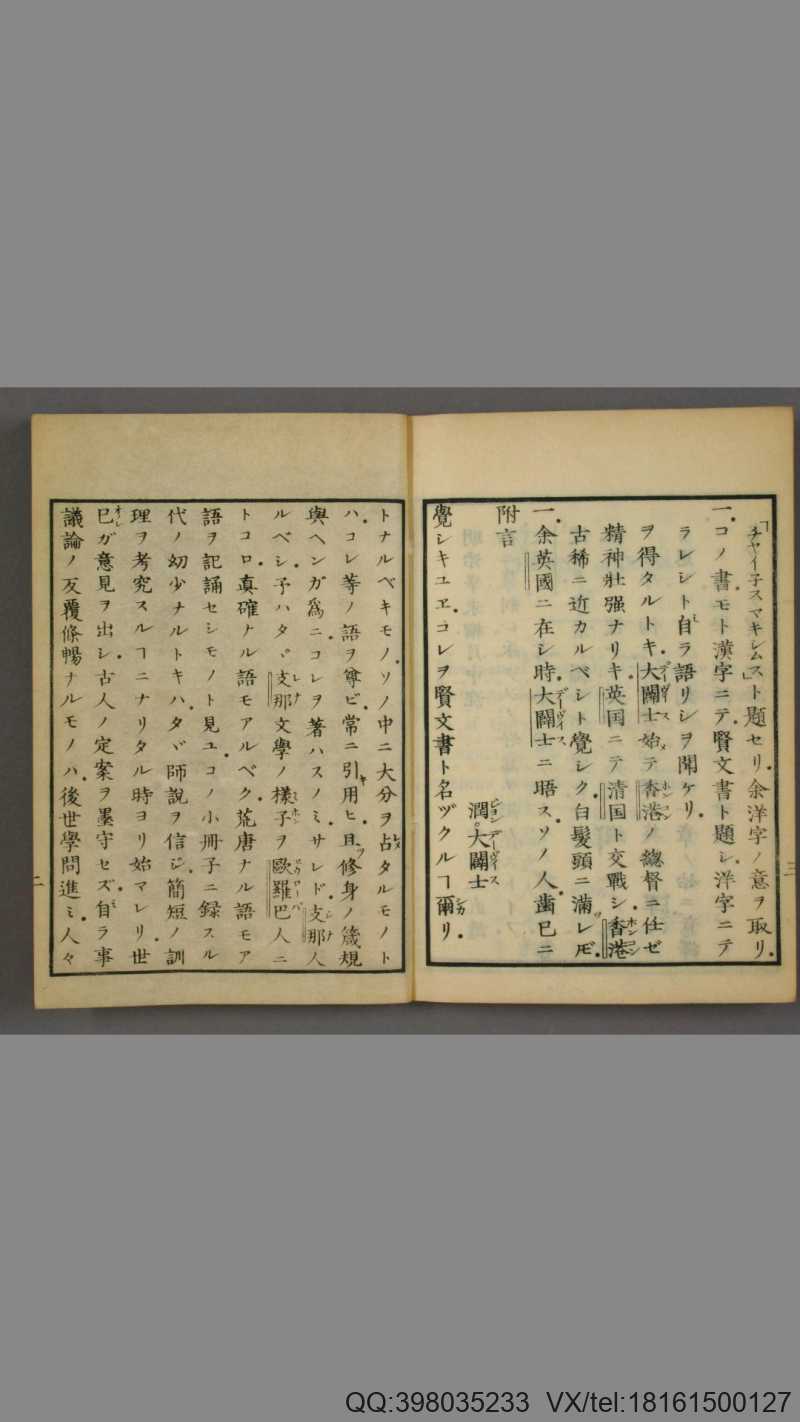 議論ノ反覆條暢ナルモノハ。後世學問進ミ。人々
巳ガ意見ヲ出シ。古人ノ定案ヲ墨守セズ。自ラ事
理ヲ考究スルヿニナリタル時ヨリ始マレリ。世
代ノ幼少ナルトキハ。タヾ師説ヲ信ジ。簡短ノ訓
語ヲ記誦セシモノト見ユ。コノ小冊子ニ録スル
トコロ。真確ナル語モアルベク。荒唐ナル語モア
ルベシ。予ハタヾ支那文學ノ樣子ヲ歐羅巴人ニ
與ヘンガ爲ニ。コレヲ著ハスノミ。サレド支那人
ハ。コレ等ノ語ヲ尊ビ。常ニ引用ヒ。且修身ノ箴規
トナルベキモノ。ソノ中ニ大分ヲ占タルモノト
二
覺シキユヱ。コレヲ賢文書ト名ヅクルヿ爾リ。
潤。大闢士
附言
一。余英國ニ在シ時。大闢士ニ晤ス。ソノ人。歯巳ニ
古稀ニ近カルベシト覺シク。白髮頭ニ滿レ𪜈。
精神壯强ナリキ。英国ニテ清国ト交戰シ。香港
ヲ得タルトキ。大闢士始テ香港ノ總督ニ任ゼ
ラレシト自ラ語リシヲ聞ケリ。
一。コノ書。モト漢字ニテ。賢文書ト題シ。洋字ニテ
「チヤイ子スマキシムス」ト題セリ。余洋字ノ意ヲ取リ。
三
QQ:398035233 VX/tel:18161500127